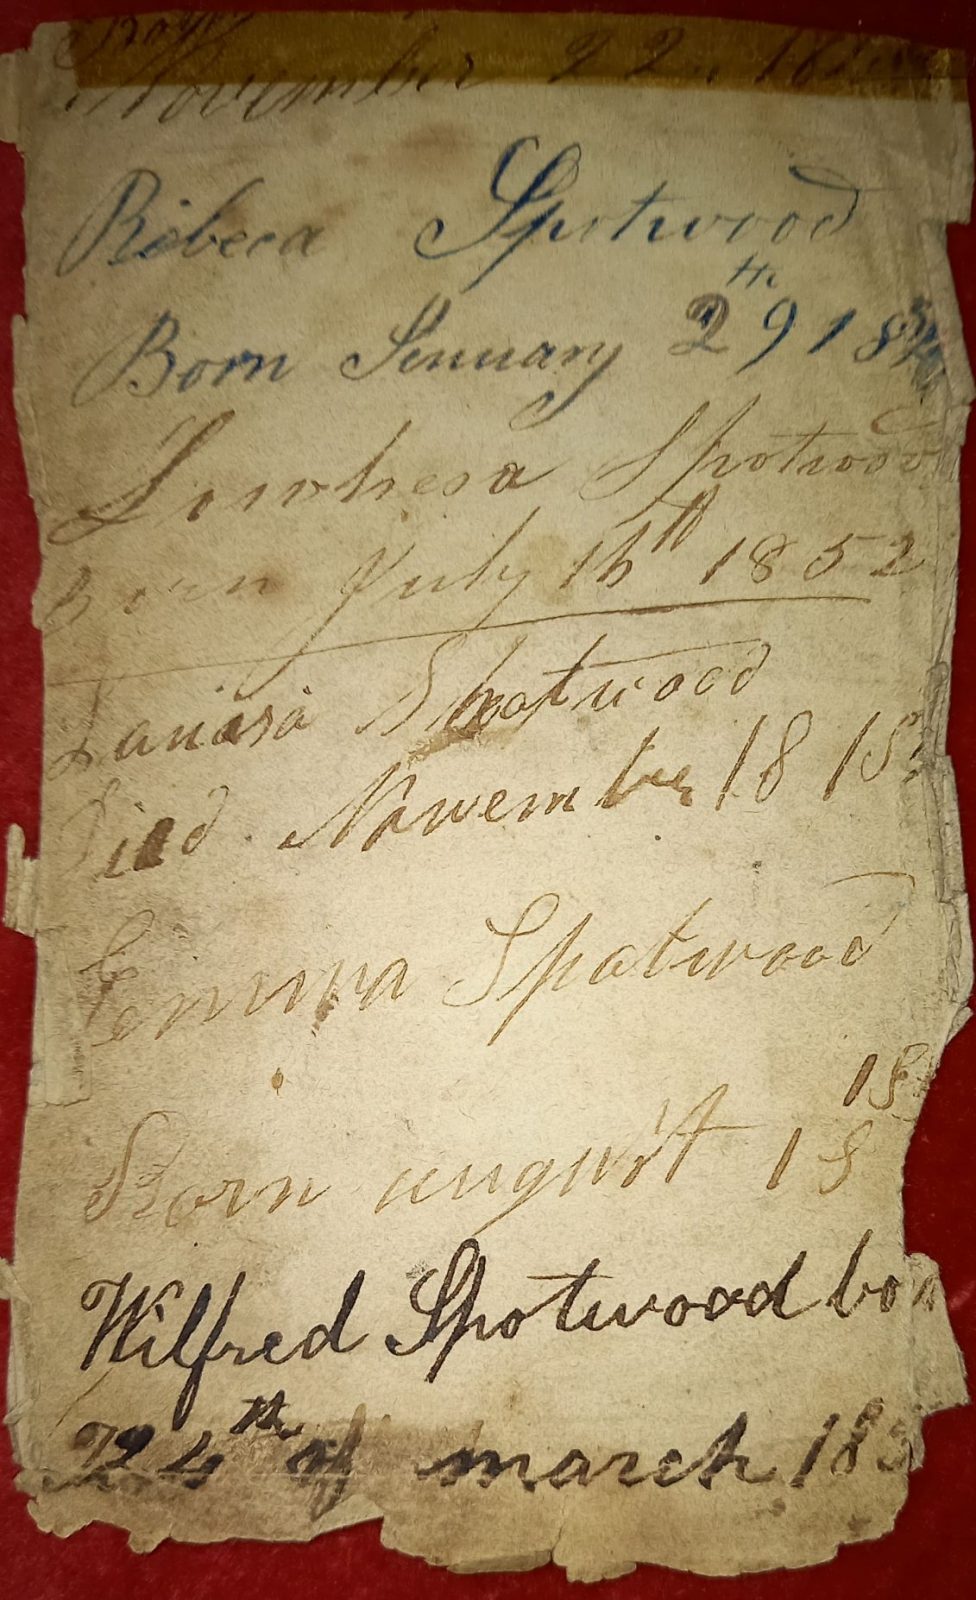 November 22
Ribeca Spotwood
Born Jenuary 29th 18
Spotwood
Born July 16th 1852
Spotwood
Died November 18 18
Emma Spotwood
18
Born august 18
Wilfred Spotwood bo
24th of march 185